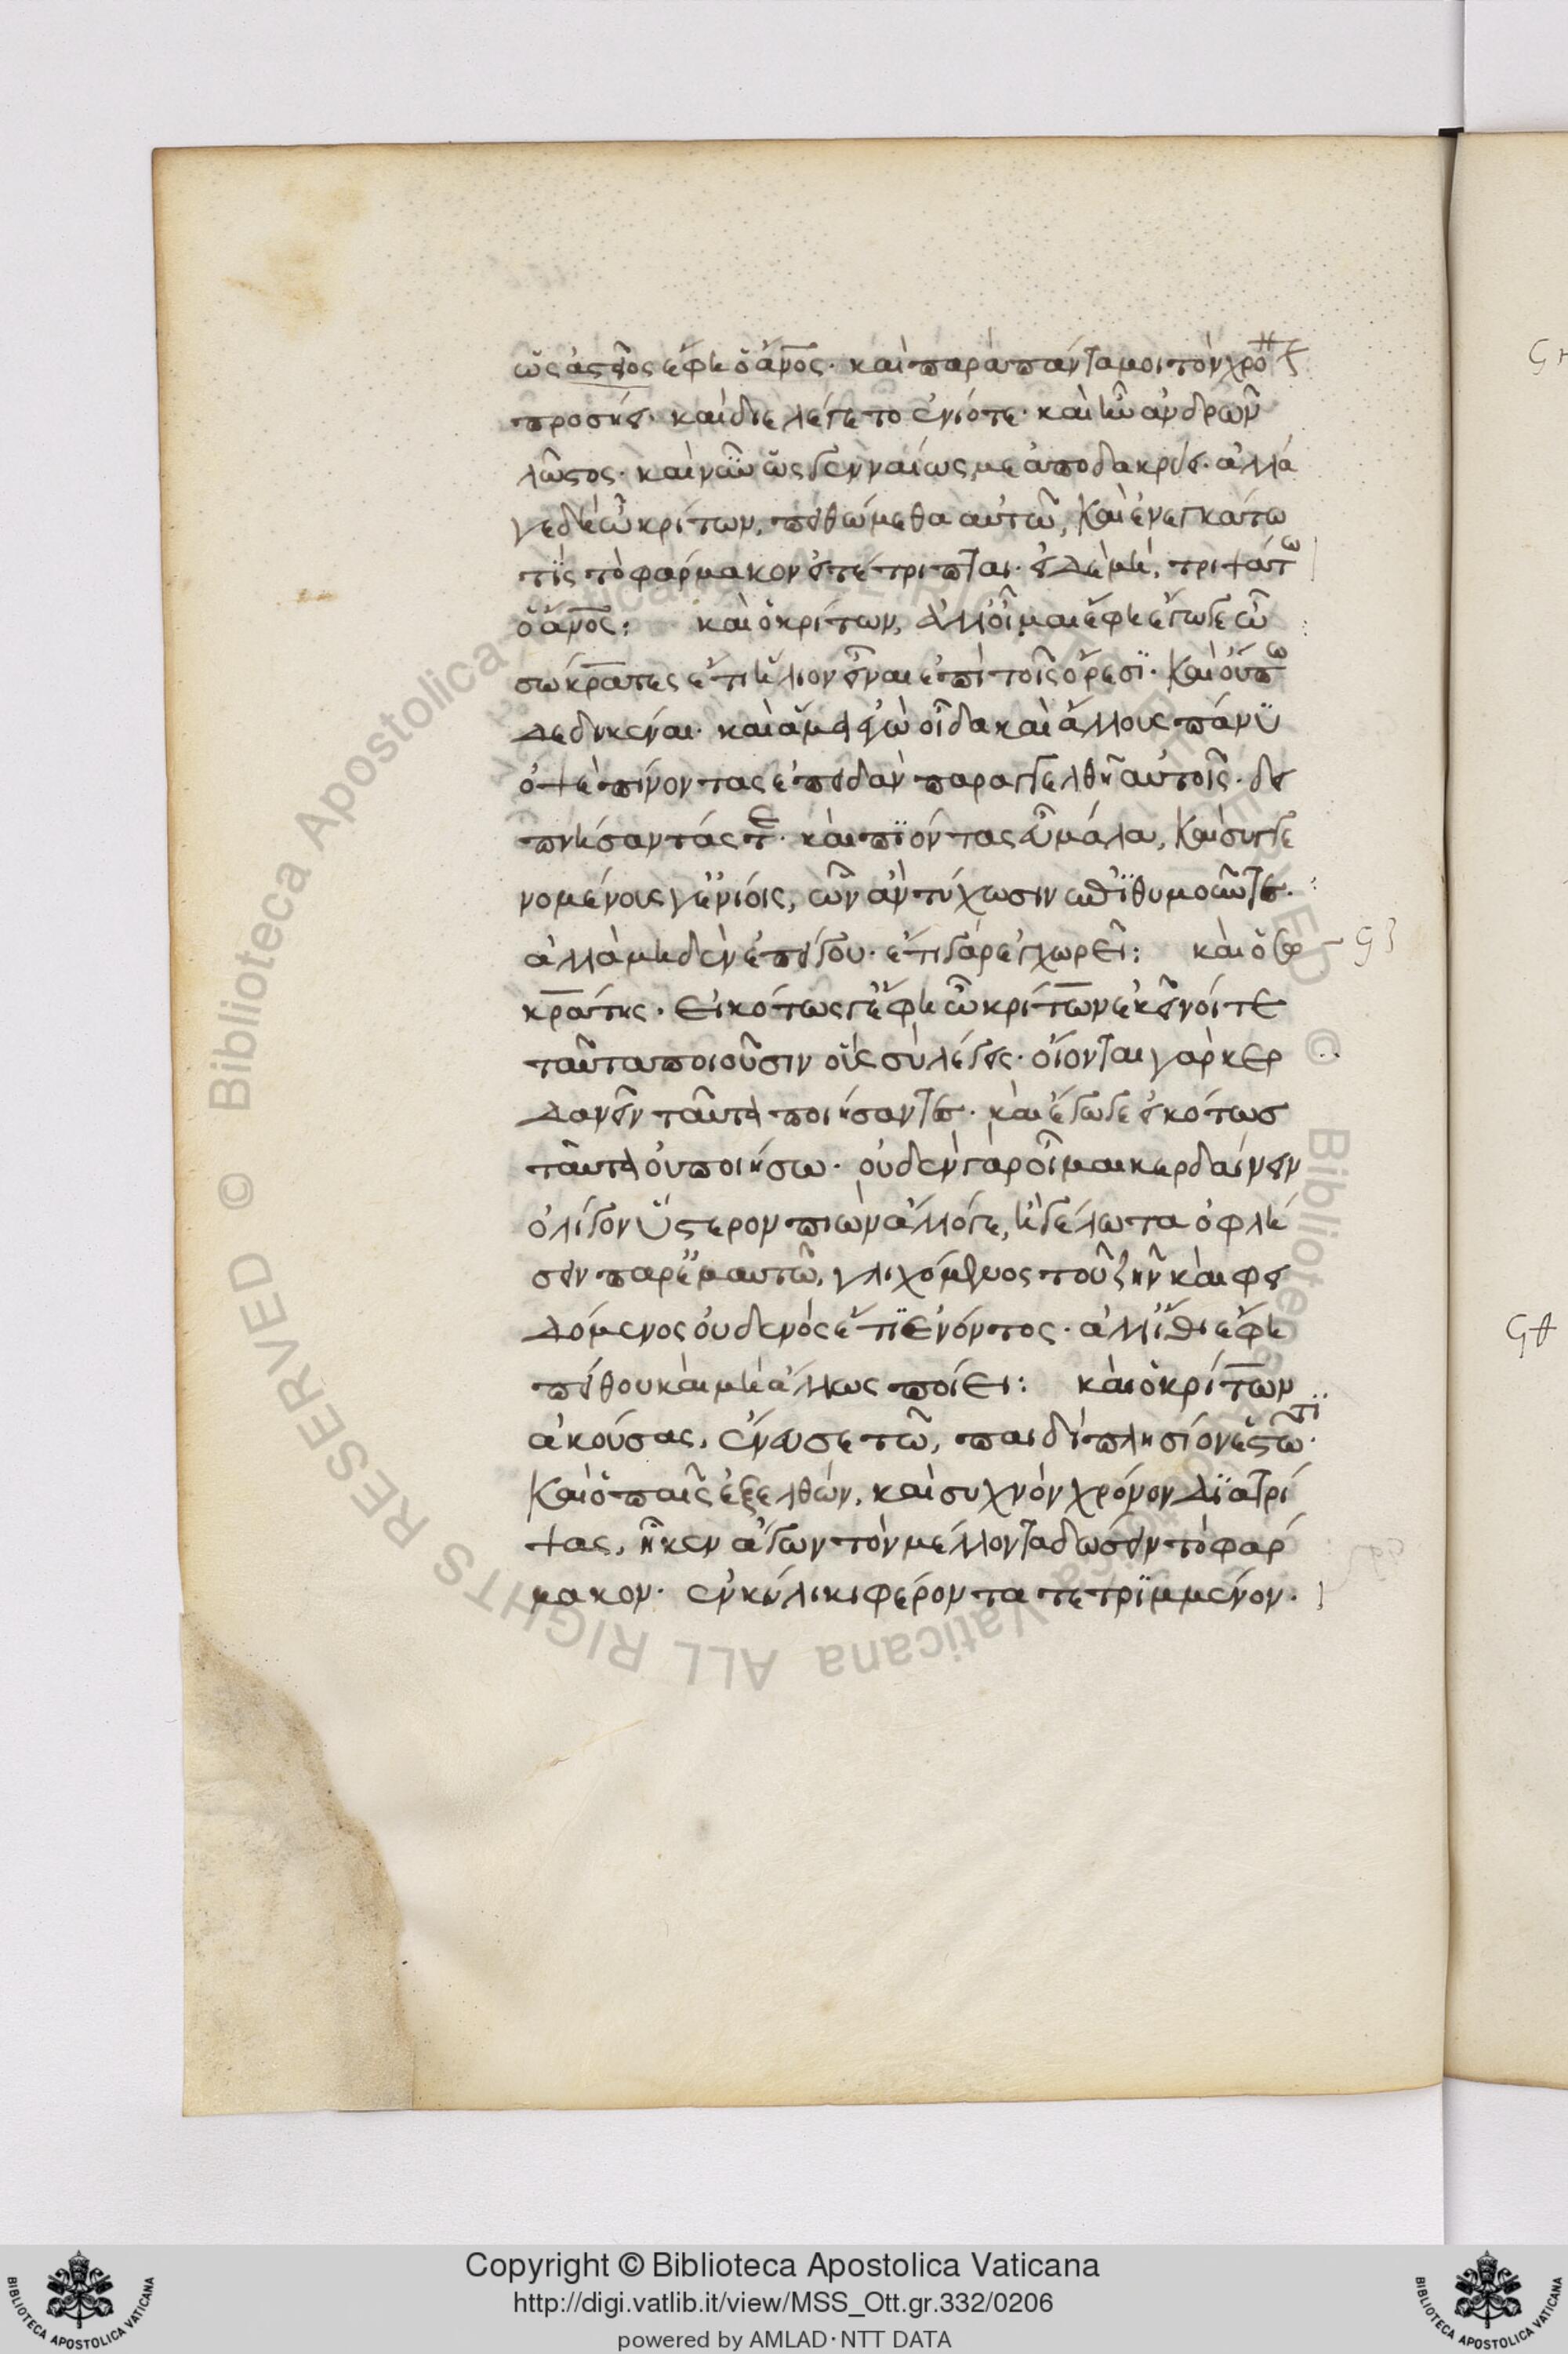 ὡς ἀστεῖος ἔφη ὁ ἄνος· καὶ παρὰ πάντα μοι τὸν χρό
προσήει· καὶ διελέγετο ἐνίοτε· καὶ ἦν ἀνδρῶν
λῶστος· καὶ νῦν ὡς γενναίως με ἀποδακρύει· ἀλλά
γε δὴ ὦ κρίτων, πειθώμεθα αὐτῶ, Καὶ ἐνεγκάτω
τίς τὸ φάρμακον εἰ τέτριπται· εἰ δὲ μή, τριψάτω
ὁ ἄνος: καὶ ὁ κρίτων, ἀλλ' οἶμαι ἔφη ἔγωγε ὦ
σώκρατες ἔτι ἥλιον εἶναι ἐπὶ τοῖς ὄρεσϊ· Καὶ οὔπω
δεδυκέναι· καὶ ἅμα ἐγὼ οἶδα καὶ ἄλλους πάνϋ
ὀψὲ πίνοντας ἐπειδὰν παραγγελθῆ αὐτοῖς· δει
πνήσαντάς τε· καὶ πϊόντας εὖ μάλα, Καὶ συγγε
νομένους γ' ἐνίοις, ὧν ἂν τύχωσιν ἐπϊθυμοῦντες·
ἀλλὰ μηδὲν ἐπείγου· ἔτι γὰρ ἐγχωρεῖ: καὶ ὁ σω
κράτης· εἰκότως γ' ἔφη ὦ κρίτων ἐκεῖνοί τε
ταῦτα ποιοῦσιν οὓς σὺ λέγεις· οἴονται γὰρ κερ
δανεῖν ταῦτα ποιήσαντες· καὶ ἔγωγε εἰκότως
ταῦτα οὐ ποιήσω· οὐδὲν γὰρ οἶμαι κερδαίνειν
ὀλίγον ὕστερον πιὼν ἄλλό γε, ἢ γέλωτα ὀφλή
σειν παρ' ἐμαυτῶ, γλιχόμενος τοῦ ζῆν καὶ φει
δόμενος οὐδενὸς ἔτϊ ἐνόντος· ἀλλ' ἴθι ἔφη
πείθου καὶ μὴ ἄλλως ποίει: καὶ ὁ κρίτων
ἀκούσας, ἔνευσε τῶ, παιδὶ πλησίον ἑστῶτϊ·
Καὶ ὁ παῖς ἐξελθών, καὶ συχνὸν χρόνον δϊατρί
ψας, ἧκεν ἄγων τὸν μέλλοντα δώσειν τὸ φάρ
μακον· ἐν κύλικι φέροντα τετρϊμμένον·
Copyright © Biblioteca Apostolica Vaticana
http://digi.vatlib.it/view/MSS_Ott.gr.332/0206
powered by AMLAD·NTT DATA